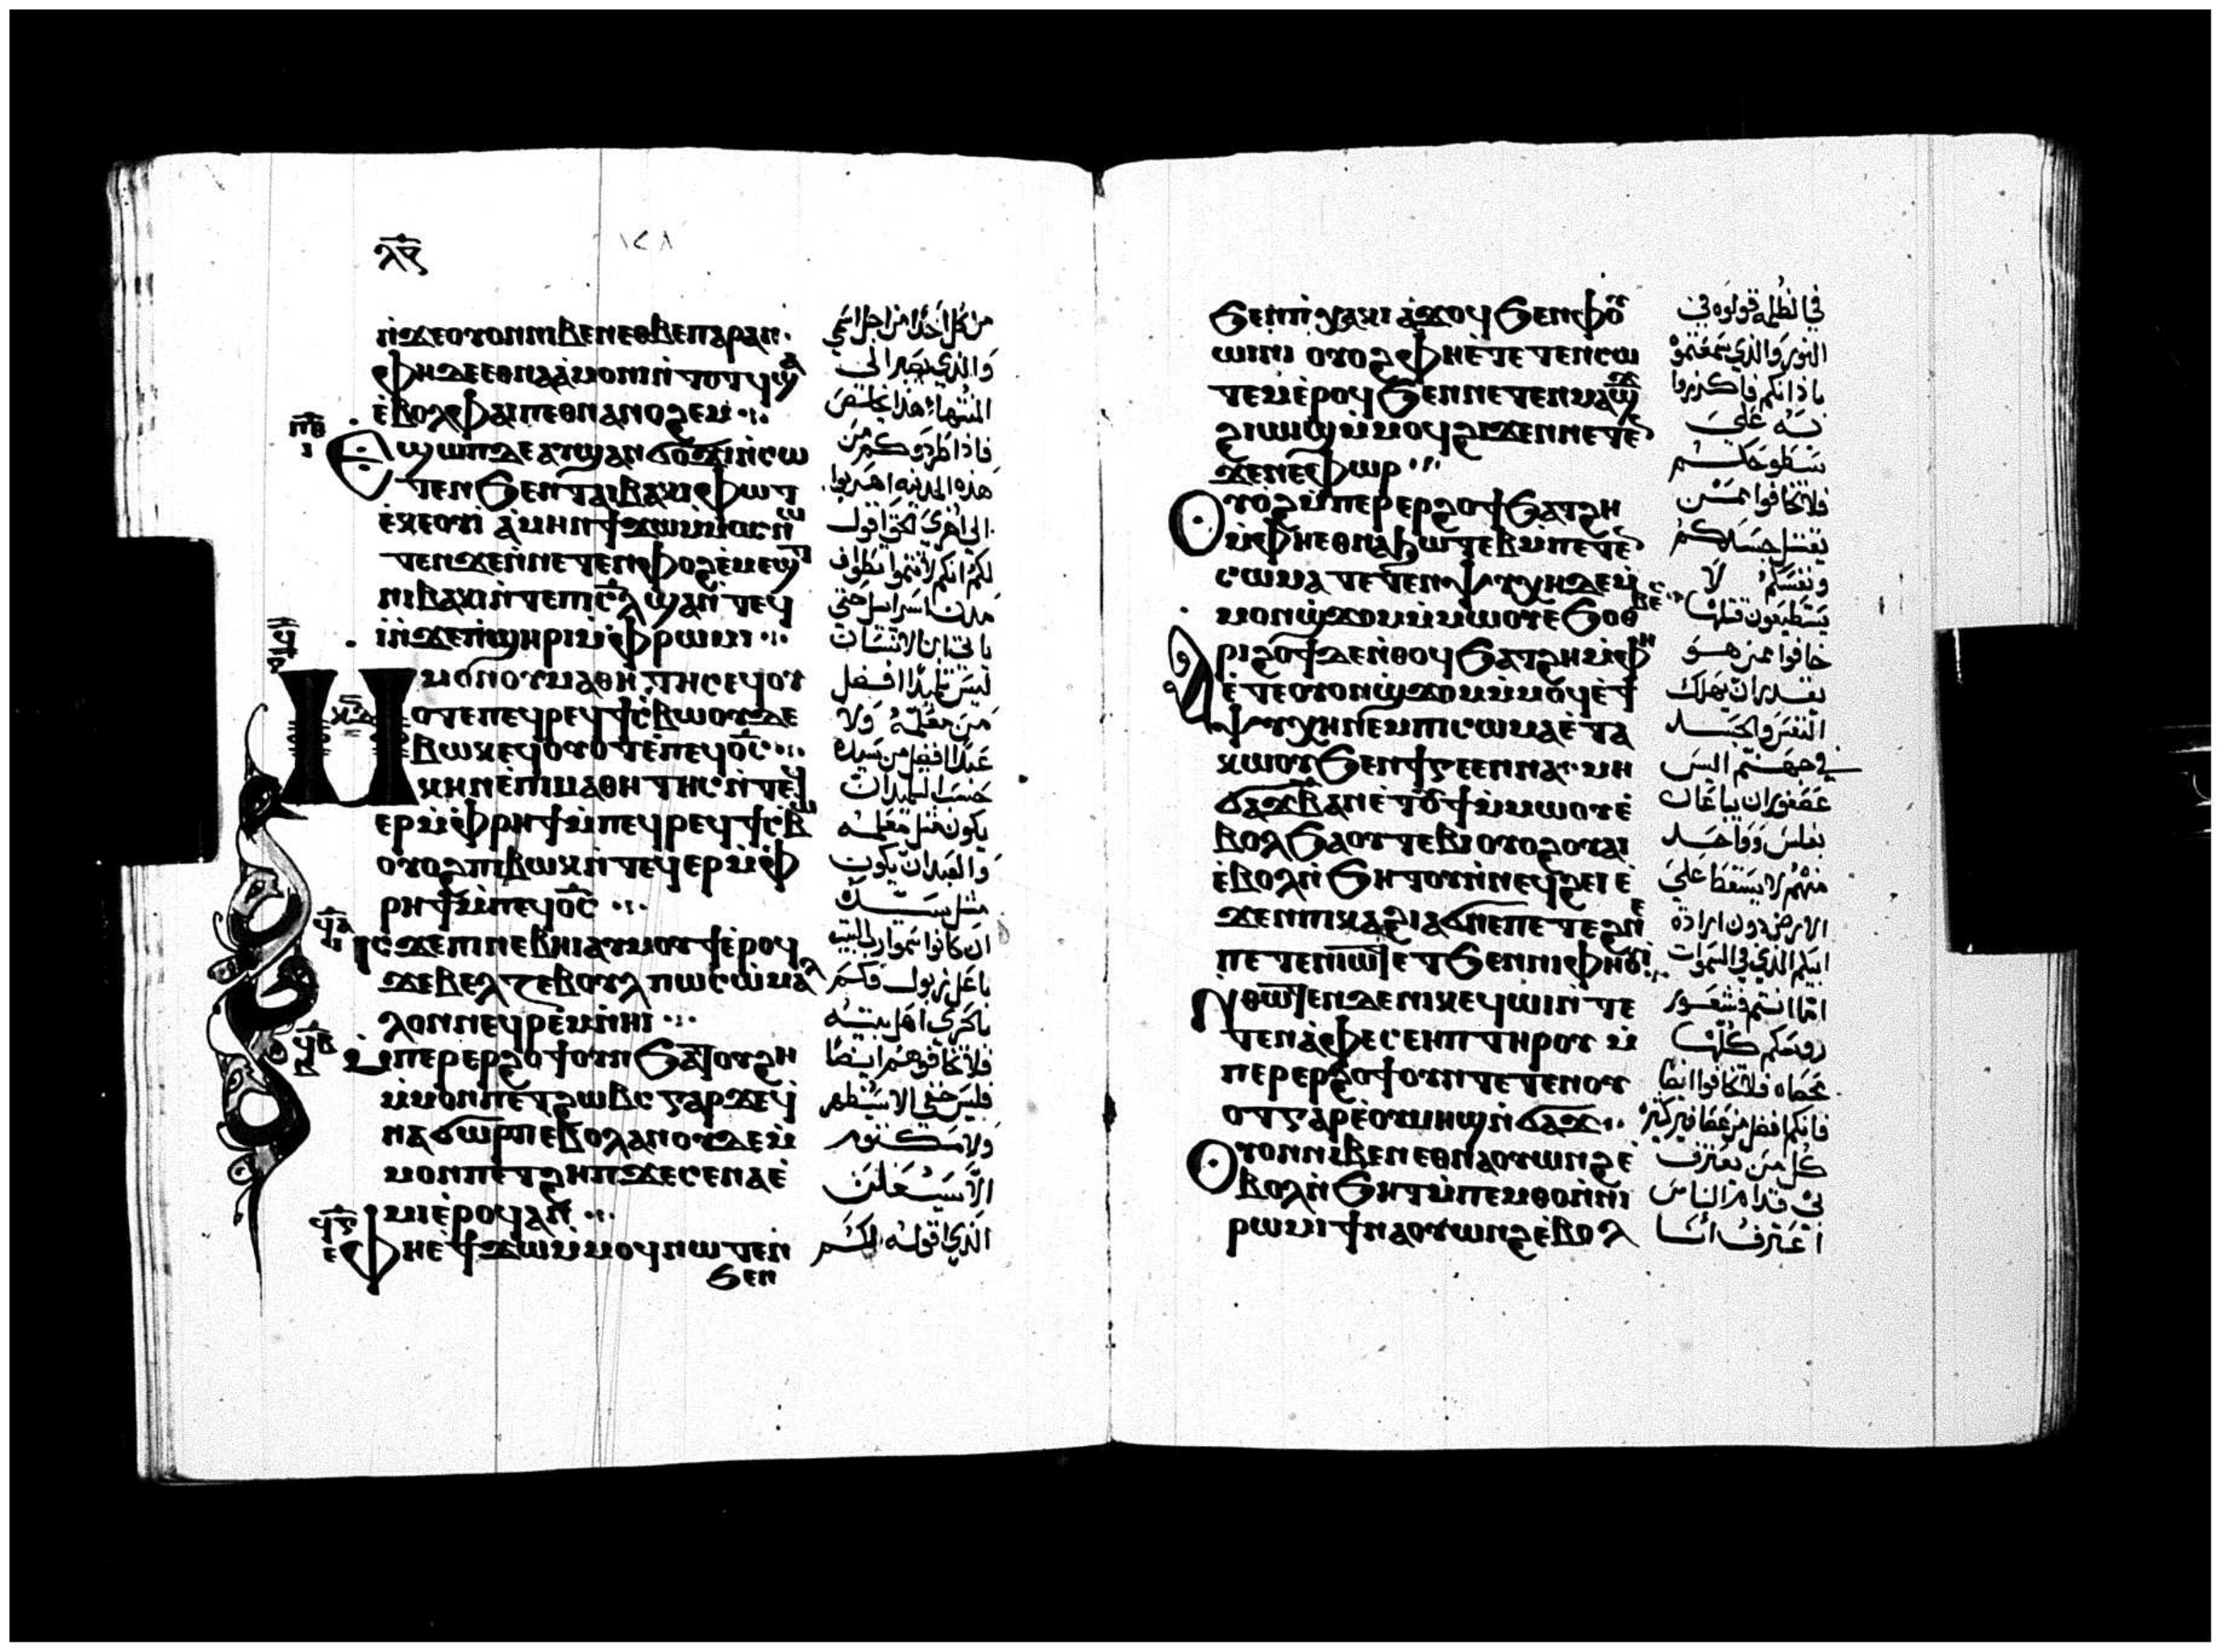 ⲗ︦ⲋ︦
١٢٨
ⲛ̀ϫⲉⲟⲩⲟⲛⲛⲓⲃⲉⲛⲉⲑⲃⲉⲡⲁⲣⲁⲛ·
ⲫⲏⲇⲉⲉⲑⲛⲁⲁ̀ⲙⲟⲛⲓⲛ̀ⲧⲟⲧϥϣⲁ
ⲉ̀ⲃⲟⲗⲫⲁⲓⲡⲉⲑⲛⲁⲛⲟϩⲉⲙ
ⲉϣⲱⲡⲇⲉⲁⲩϣⲁⲛϭⲟϫⲓⲛ̀ⲥⲱ
ⲧⲉⲛϧⲉⲛⲧⲁⲓⲃⲁⲕⲓⲫⲱⲧ
ⲉ̀ⲕⲉⲟⲩⲓ̀ ⲁ̀ⲙⲏⲛϯϫⲱⲙ̀ⲙⲟⲥⲛⲱ
ⲧⲉⲛϫⲉⲛ̀ⲛⲉⲧⲉⲛⲫⲟϩⲉ̀ⲙⲉϣⲧ
ⲛⲓⲃⲁⲕⲓⲛ̀ⲧⲉⲡⲓⲥ︦ⲗ︦ϣⲁⲛ̀ⲧⲉϥ
ⲓ̀ⲛ̀ϫⲉⲡ̀ϣⲏⲣⲓⲙ̀ⲫⲣⲱⲙⲓ
ⲙ̀ⲙⲟⲛⲟⲩⲙⲁⲑⲏⲧⲏⲥⲉϥⲟⲩ
ⲟⲧⲉⲡⲉϥⲣⲉϥϯⲥ̀ⲃⲱⲟⲩⲇⲉ
ⲃⲱⲕⲉϥⲟⲩⲟⲧⲉ̀ⲡⲉϥⲟ̅ⲥ̅
ⲕⲏⲛⲉ̀ⲡⲓⲙⲁⲑⲏⲧⲏⲥⲛ̀ⲧⲉϥ
ⲉⲣⲙ̀ⲫⲣⲏϯⲙ̀ⲡⲉϥⲣⲉϥϯⲥ̀ⲃⲱ
ⲟⲩⲟϩⲡⲓⲃⲱⲕⲛ̀ⲧⲉϥⲉⲣⲙ̀ⲫ
ⲣⲏϯⲙ̀ⲡⲉϥⲟ̅ⲥ̅
ⲓⲥϫⲉⲡⲓⲛⲉⲃⲏⲓⲁⲩⲙⲟⲩϯⲉ̀ⲣⲟϥ
ϫⲉⲃⲉⲗⲍⲉⲃⲟⲩⲗ ⲡⲱⲥⲱ̀ⲙⲁⲗ
ⲗⲟⲛⲛⲉϥⲣⲉⲙ̀ⲛⲏⲓ
ⲙ̀ⲡⲉⲣⲉⲣϩⲟϯⲟⲩⲛϧⲁⲧⲟⲩϩⲏ
ⲙ̀ⲙⲟⲛⲡⲉⲧϩⲱⲃⲥⲅⲁⲣϫⲉϥ
ⲛⲁϭⲱⲣⲡⲉⲃⲟⲗⲁⲛⲟⲩⲇⲉⲙ̀
ⲙⲟⲛⲡⲉⲧϩⲏⲡϫⲉⲥⲉⲛⲁⲉ̀
ⲙⲓⲉ̀ⲣⲟϥⲁⲛ
ⲫⲏⲉ̀ϯϫⲱⲙ̀ⲙⲟϥⲛⲱⲧⲉⲛ
ϧⲉⲛ
من كل احد من اجل اسمي
والذي يصبر الى
المنتها هذا يخلص
فاذا طردوكم من
هذه المدينه اهربوا
الى اخرى الحق اقول
لكم انكم لا تتموا تطواف
مدن اسراييل حتى
ياتي ابن الانسان
ليس تلميذا افضل
من معلمه ولا
عبدا افضل من سيده
حسب التلميذ ان
يكون مثل معلمه
والعبد ان يكون
مثل سيده
ان كانوا سموا رب البيت
باعل زبول فكم
بالحرى اهل بيته
فلا تخافوهم ايضا
فليس خفي الا سيظهر
ولا مكتوم
الا سيعلن
الذي اقوله لكم
ϧⲉⲛⲡⲓⲭⲁⲕⲓ ⲁ̀ϫⲟϥϧⲉⲛⲫⲟⲩ
ⲱⲓⲛⲓ ⲟⲩⲟϩⲫⲏⲉ̀ⲧⲉⲧⲉⲛⲥⲱ
ⲧⲉⲙⲉ̀ⲣⲟϥϧⲉⲛⲛⲉⲧⲉⲛⲙⲁϣϫ
ϩⲓⲱⲓϣⲙ̀ⲙⲟϥϩⲓϫⲉⲛⲛⲉⲧⲉⲛ
ϫⲉⲛⲉⲫⲱⲣ
ⲟⲩⲟϩⲙ̀ⲡⲉⲣⲉⲣϩⲟϯϧⲁⲧϩⲏ
ⲙ̀ⲫⲏⲉⲑⲛⲁϧⲱⲧⲉⲃⲙ̀ⲡⲉⲧⲉⲛ
ⲥⲱⲙⲁ ⲧⲉⲧⲉⲛⲯⲩⲭⲏⲇⲉⲙ̀
ⲙⲟⲛϣ̀ϫⲟⲙⲙ̀ⲙⲱⲟⲩⲉ̀ϧⲟⲑⲃⲉⲥ
ⲁⲣⲓϩⲟϯⲇⲉⲛ̀ⲑⲟϥϧⲁⲧϩⲏⲙ̀ⲫⲏ
ⲉ̀ⲧⲉⲟⲩⲟⲛϣ̀ϫⲟⲙⲙ̀ⲙⲟϥⲉ̀ϯ
ⲯⲩⲭⲏⲛⲉⲙⲡⲓⲥⲱⲙⲁⲉ̀ⲧⲁ
ⲕⲱⲟⲩϧⲉⲛϯⲅⲉⲉⲛⲛⲁ ⲙⲏ
ϭⲁϫⲃ̅ⲁⲛⲉ̀ⲧⲟⲩϯⲙ̀ⲙⲱⲟⲩⲉ̀
ⲃⲟⲗϧⲁⲟⲩⲧⲉⲃⲓⲟⲩⲟϩⲟⲩⲁⲓ
ⲉ̀ⲃⲟⲗⲛ̀ϧⲏⲧⲟⲩⲛ̀ⲛⲉϥϩⲉⲓⲉ̀
ϫⲉⲛⲡⲓⲕⲁϩⲓⲁϭⲛⲉⲡⲉⲧⲉϩⲛⲉ
ⲡⲉⲧⲉⲛⲓⲱⲧⲉⲧϧⲉⲛⲛⲓⲫⲏⲟⲩⲓ
ⲛ̀ⲑⲱⲧⲉⲛⲇⲉⲛⲓⲕⲉϥⲱⲓⲛ̀ⲧⲉ
ⲧⲉⲛⲁ̀ⲫⲉⲥⲉⲏⲡ ⲧⲏⲣⲟⲩ ⲙ̀
ⲡⲉⲣⲉⲣϩⲟϯⲟⲩⲛⲧⲉⲧⲉⲛⲟⲩ
ⲟⲧⲅⲁⲣⲉ̀ⲟⲩⲙⲏϣⲛ̀ϭⲁϫ
ⲟⲩⲟⲛⲛⲓⲃⲉⲛⲉⲑⲛⲁⲟⲩⲱⲛϩⲉ̀
ⲃⲟⲗⲛ̀ϧⲏⲧⲙ̀ⲡⲉⲙⲑⲟⲛ̀ⲛⲓ
ⲣⲱⲙⲓϯⲛⲁⲟⲩⲱⲛϩⲉ̀ⲃⲟⲗ
في الظلمه قولوه في
النور والذي سمعتموه
باذانكم فاكرزوا
به على
سطوحكم
فلا تخافوا ممن
يقتل جسدكم
ونفسكم لا
يستطيعون قتلها
خافوا ممن هو
يقدر ان يهلك
النفس والجسد
في جهنم اليس
عصفوران يباعان
بفلس وواحد
منهم لا يسقط على
الارض دون ارادة
ابيكم الذي في السموات
اما انتم فشعور
روسكم كلها
محصاه فلا تخافوا ايضا
فانكم افضل من عصافير كثيره
كل من يعترف
بي قدام الناس
اعترف انا